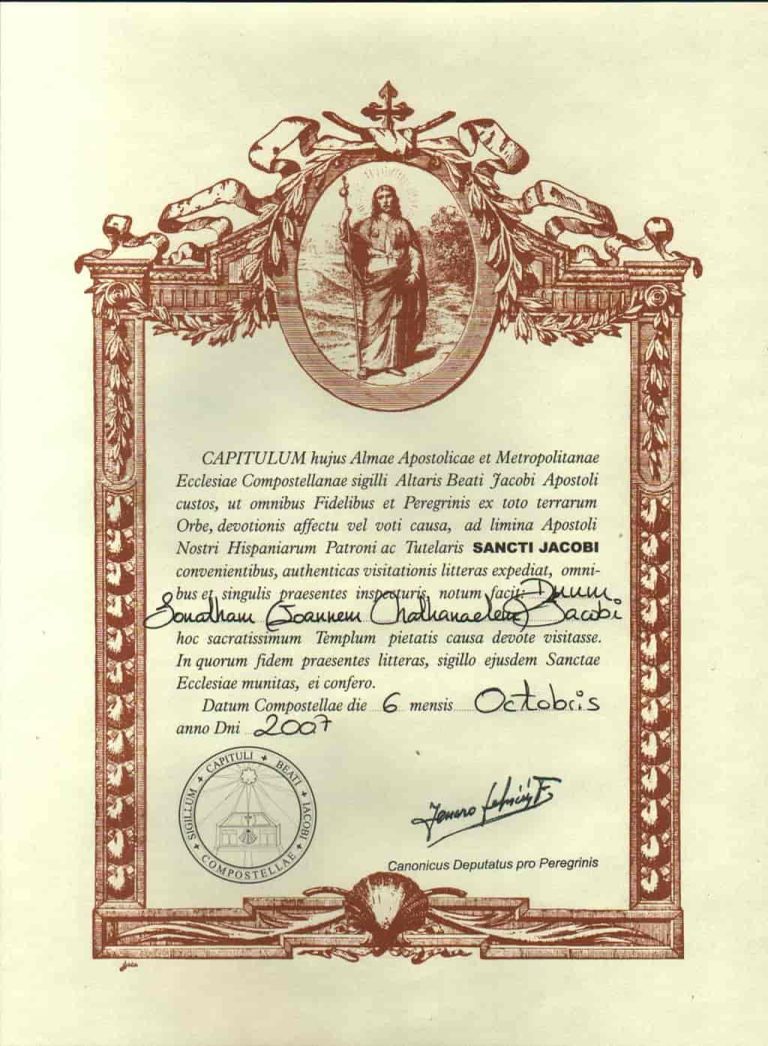 CAPITULUM hujus Almae Apostolicae et Metropolitanae
Ecclesiae Compostellanae sigilli Altaris Beati Jacobi Apostoli
custos, ut omnibus Fidelibus et Peregrinis ex toto terrarum
Orbe, devotionis affectu vel voti causa, ad limina Apostoli
Nostri Hispaniarum Patroni ac Tutelaris SANCTI JACOBI
convenientibus, authenticas visitationis litteras expediat, omni-
bus et singulis praesentes inspecturis, notum facit: Dnum
Joannem Jacobi
hoc sacratissimum Templum pietatis causa devote visitasse.
In quorum fidem praesentes litteras, sigillo ejusdem Sanctae
Ecclesiae munitas, ei confero.
Datum Compostellae die 6 mensis Octobris
anno Dni 2007
SIGILLUM + CAPITULI + BEATI + IACOBI + COMPOSTELLAE +
Canonicus Deputatus pro Peregrinis